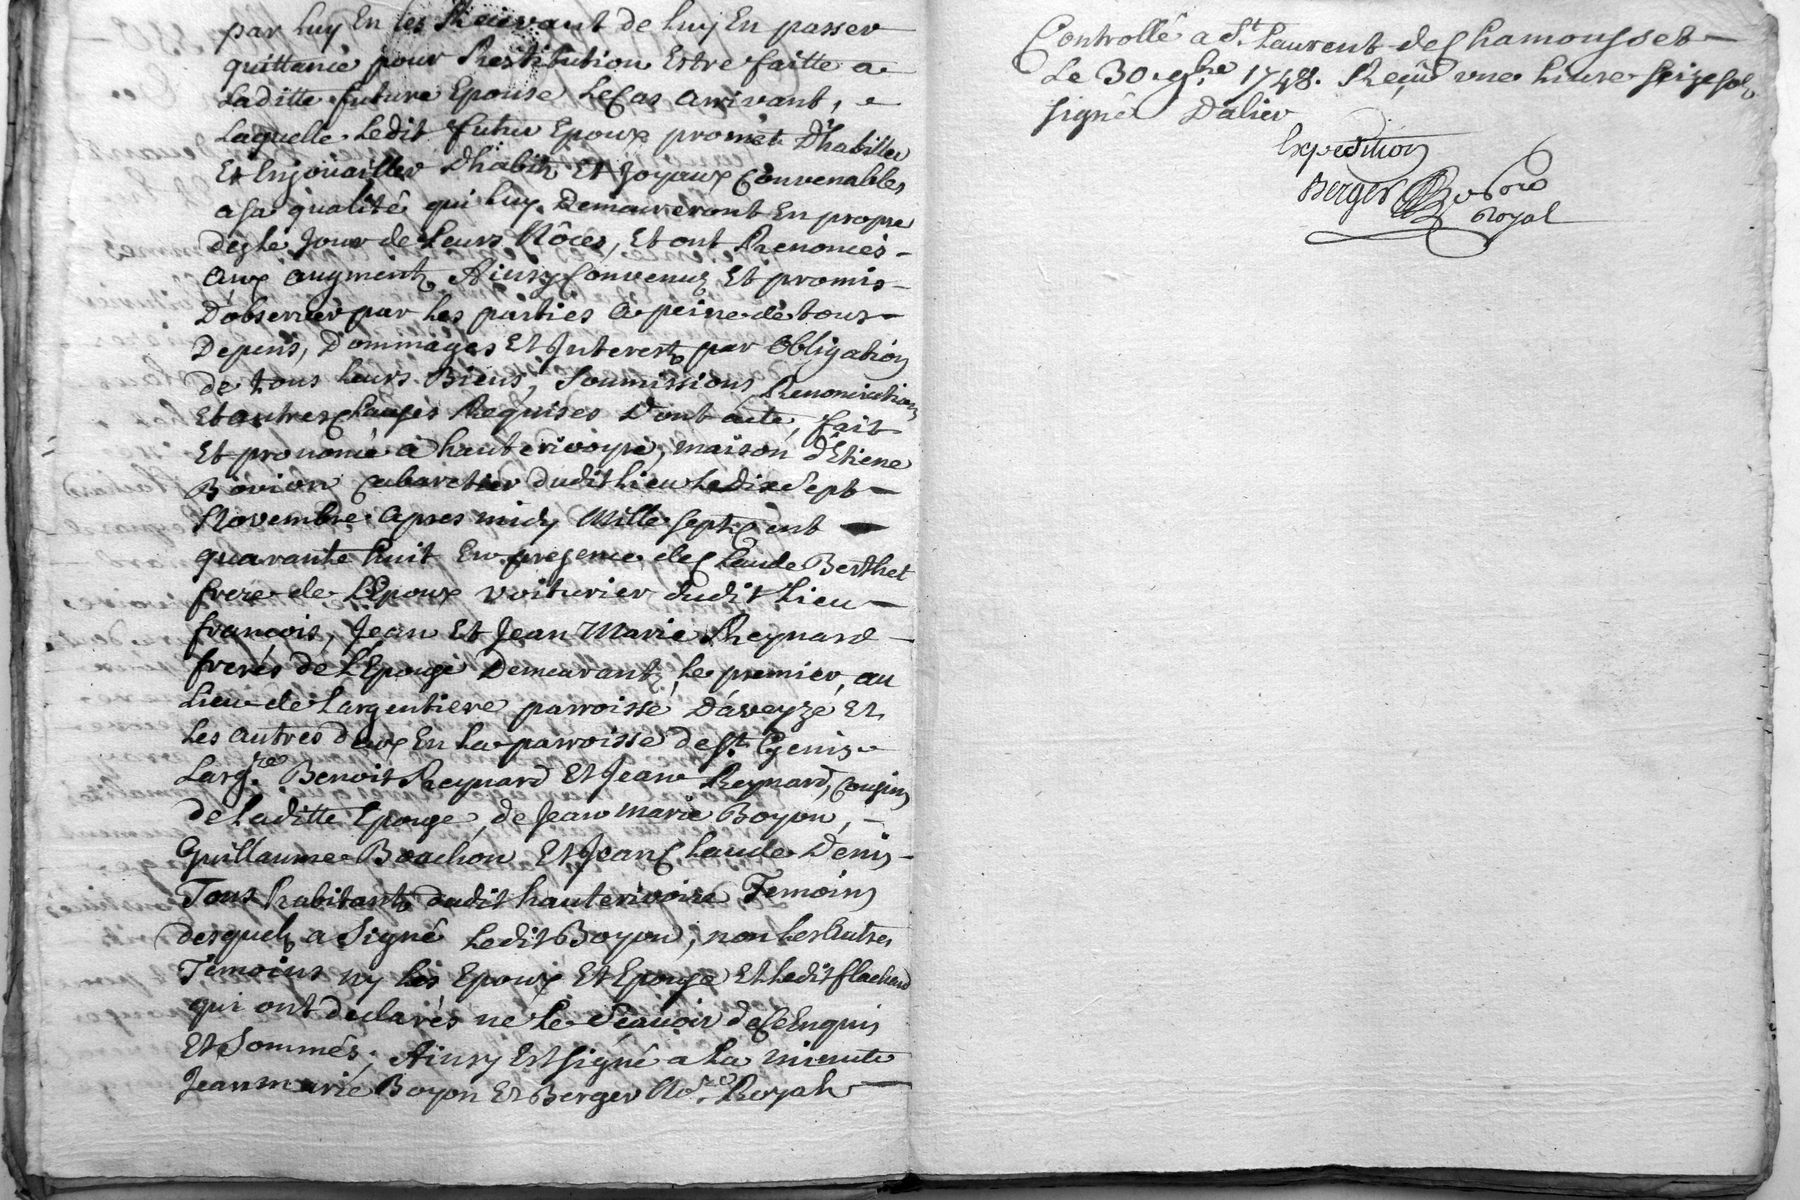 par luy En les Recevant de luy En passer
quittance pour Restitution Estre faitte a
Laditte future Epouse Le Cas arrivant, a
Laquelle Ledit futur Epoux promet D'habiller
Et Enjoüailler D'habits Et Joyaux Convenables
a sa qualité qui luy Demeureront En propre
dez le Jour de Leurs Nôces, Et ont Renoncés
aux augments, Ainsy Convenus Et promis
D'observer par Les parties a peine de tous
Depens, Dommages Et Interests par Obligation
de tous Leurs Biens, Soumissions Renonciations
Et autres Clauses Requises Dont acte, fait
Et prononcé a hauterivoyre, maison d'Etiene
Bovion Cabaretier dudit Lieu Le dix Sept
Novembre apres midy Mille Sept Cent
quarante huit En presence de Claude Berthet
frere de L'Epoux voiturier dudit Lieu
françois, Jean Et Jean Marie Reynard
freres de L'Epouse Demeurants, le premier, au
Lieu de Largentiere parroisse D'aveyze Et
Les autres deux En La parroisse de St. Genis
Larg.re Benoit Reynard Et Jean Reynard, Cousins
de Laditte Epouse, de Jean Marie Boyon,
Guillaume Boachon Et Jean Claude Denis
Tous habitants dudit hauterivoire Temoins
desquels a Signé Ledit Boyon, non Les Autres
Temoins ny Les Epoux Et Epouse Et Ledit flachard
qui ont declarés ne Le Sçauoir de Ce Enquis
Et Sommés, Ainsy Est Signé a La minute
Jean marie Boyon Et Berger No.re Royal
Controllé a St. Laurent de Chamousset
Le 30 9bre 1748. Reçu une Livre Seize Sols
signé Dalier
Expedition
Berger
Royal